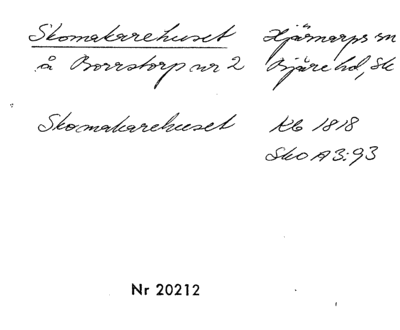 Skomakarehuset Hjärnarps sn
å Borrstorp nr 2 Bjäre hd, Sk
Skomakarehuset Kb 1818
Sko A3:93
Nr 20212